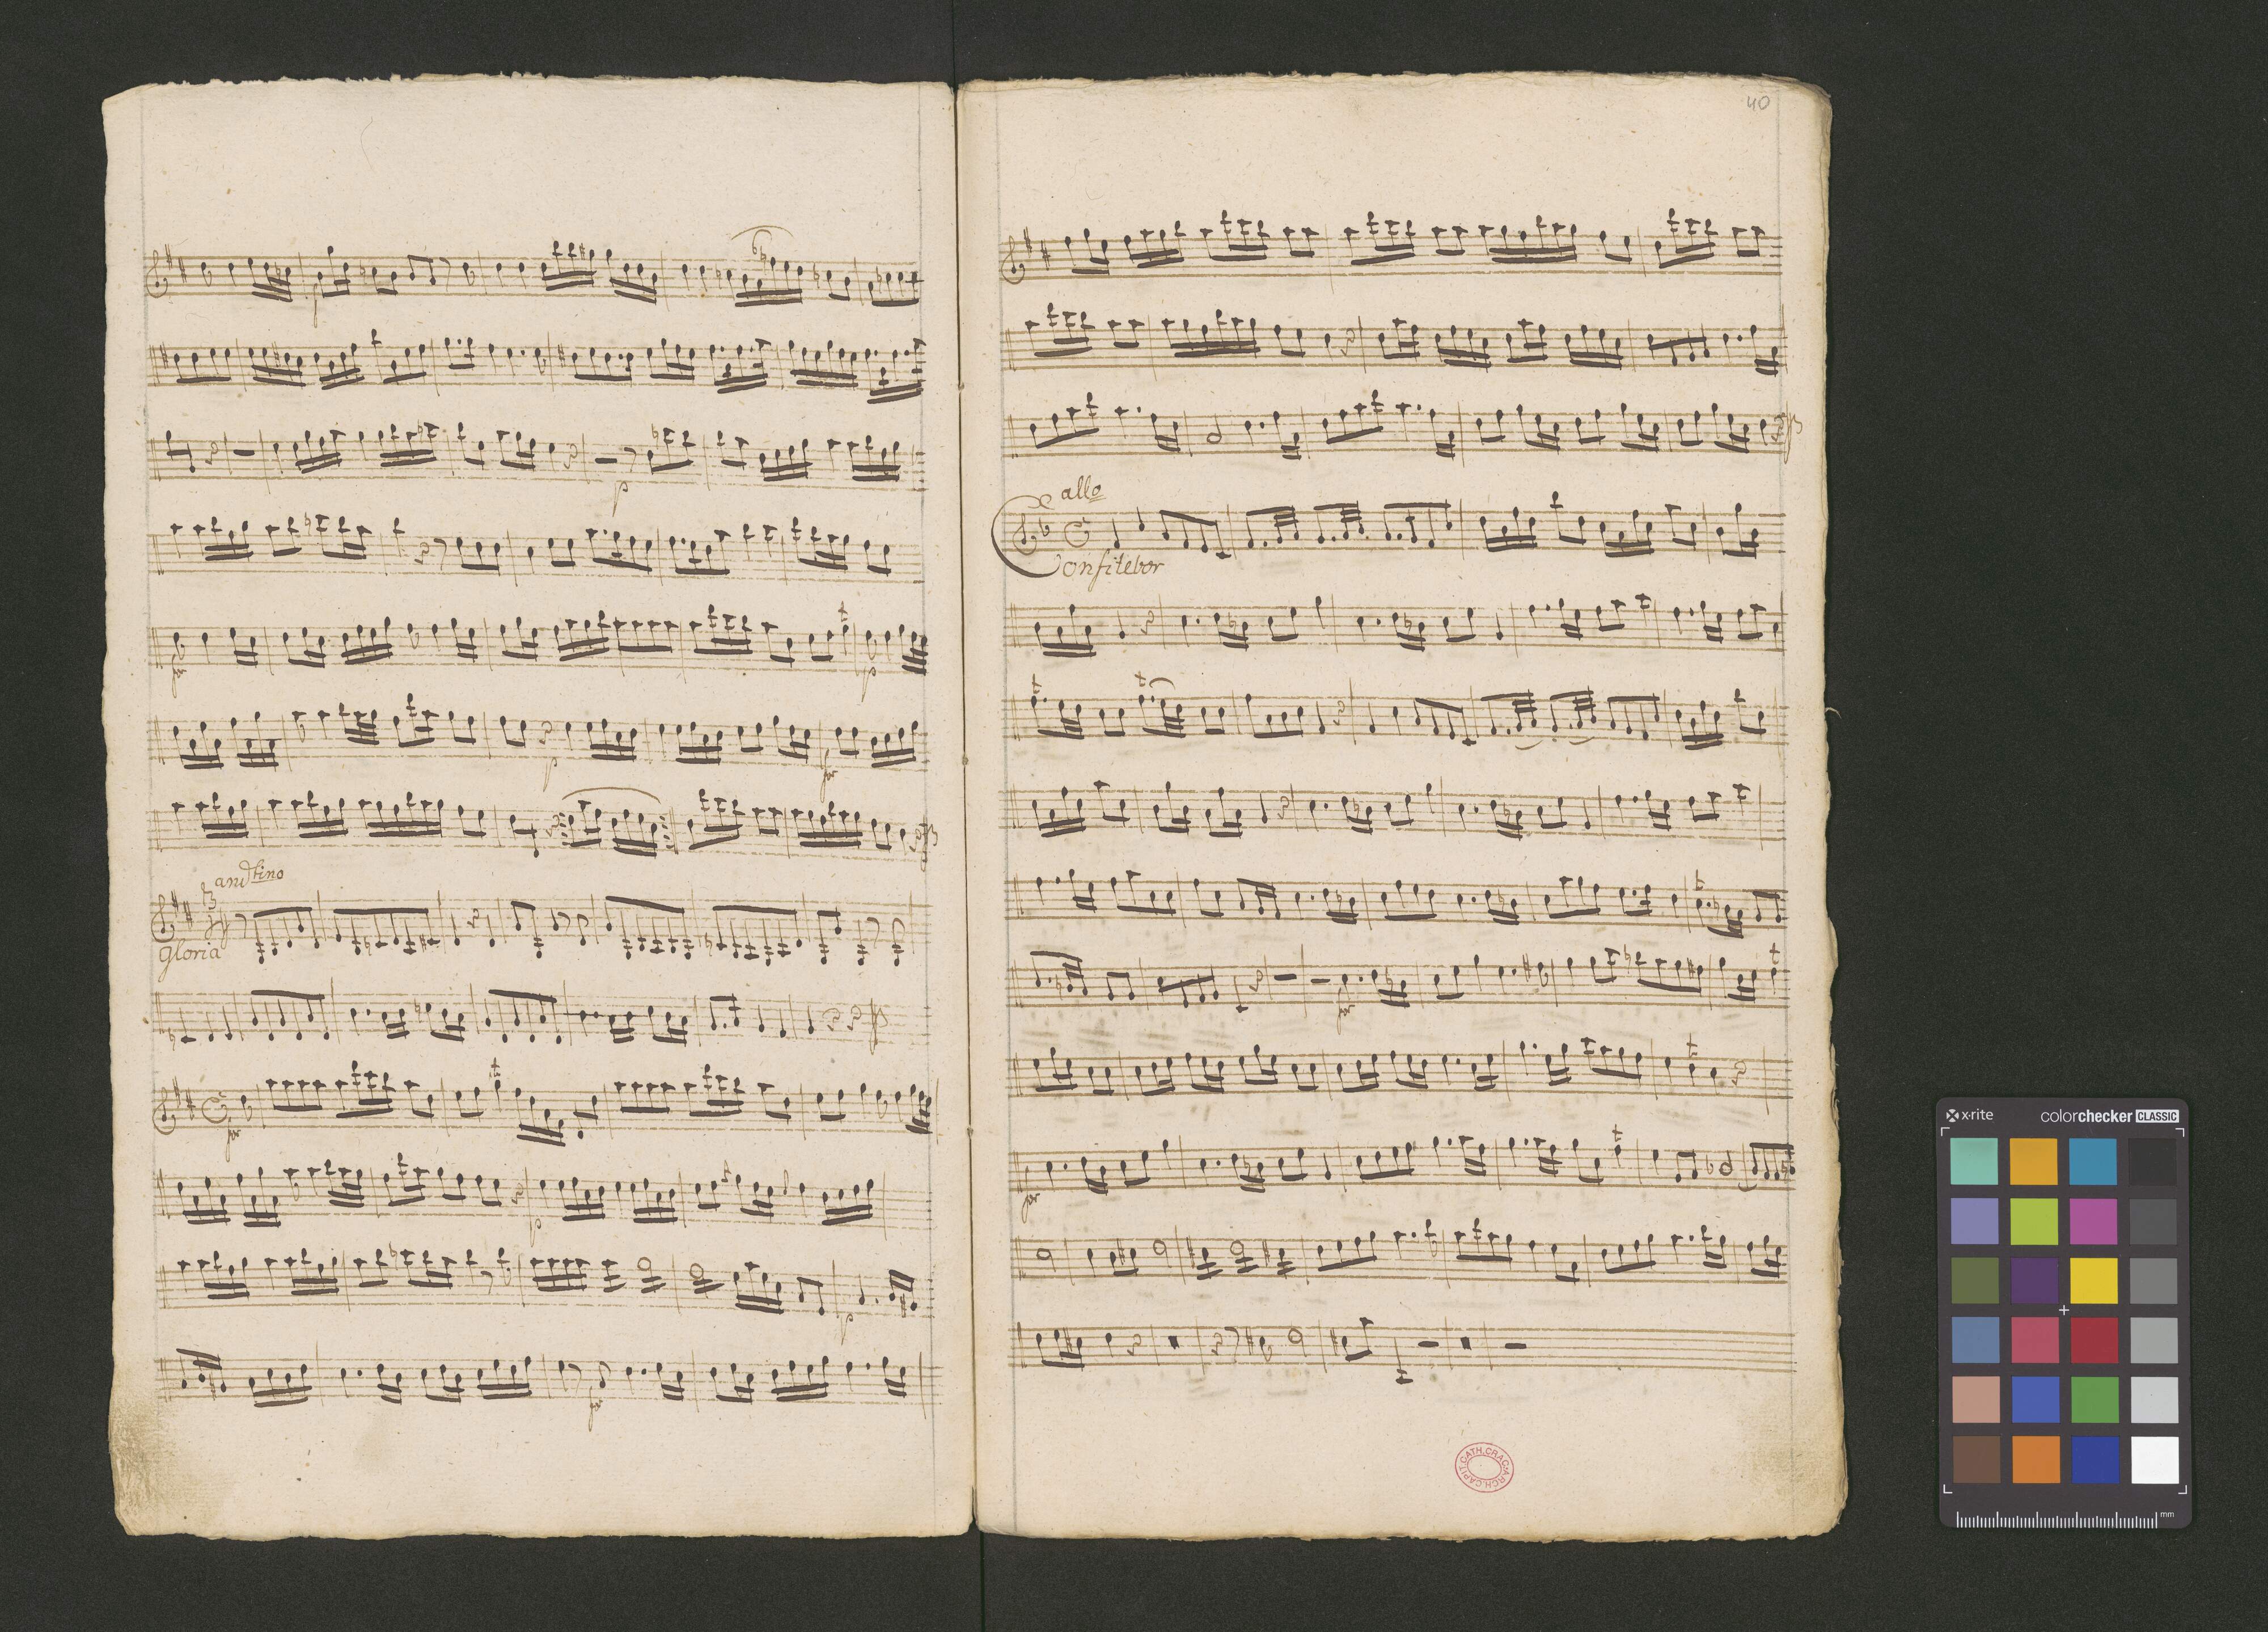 p
p
for
p
p
for
andtino
Gloria
for
p
p
for
40
allo
Confitebor
for
for
ARCH. CAPIT. CATH. CRAC.
x-rite
colorchecker CLASSIC
mm